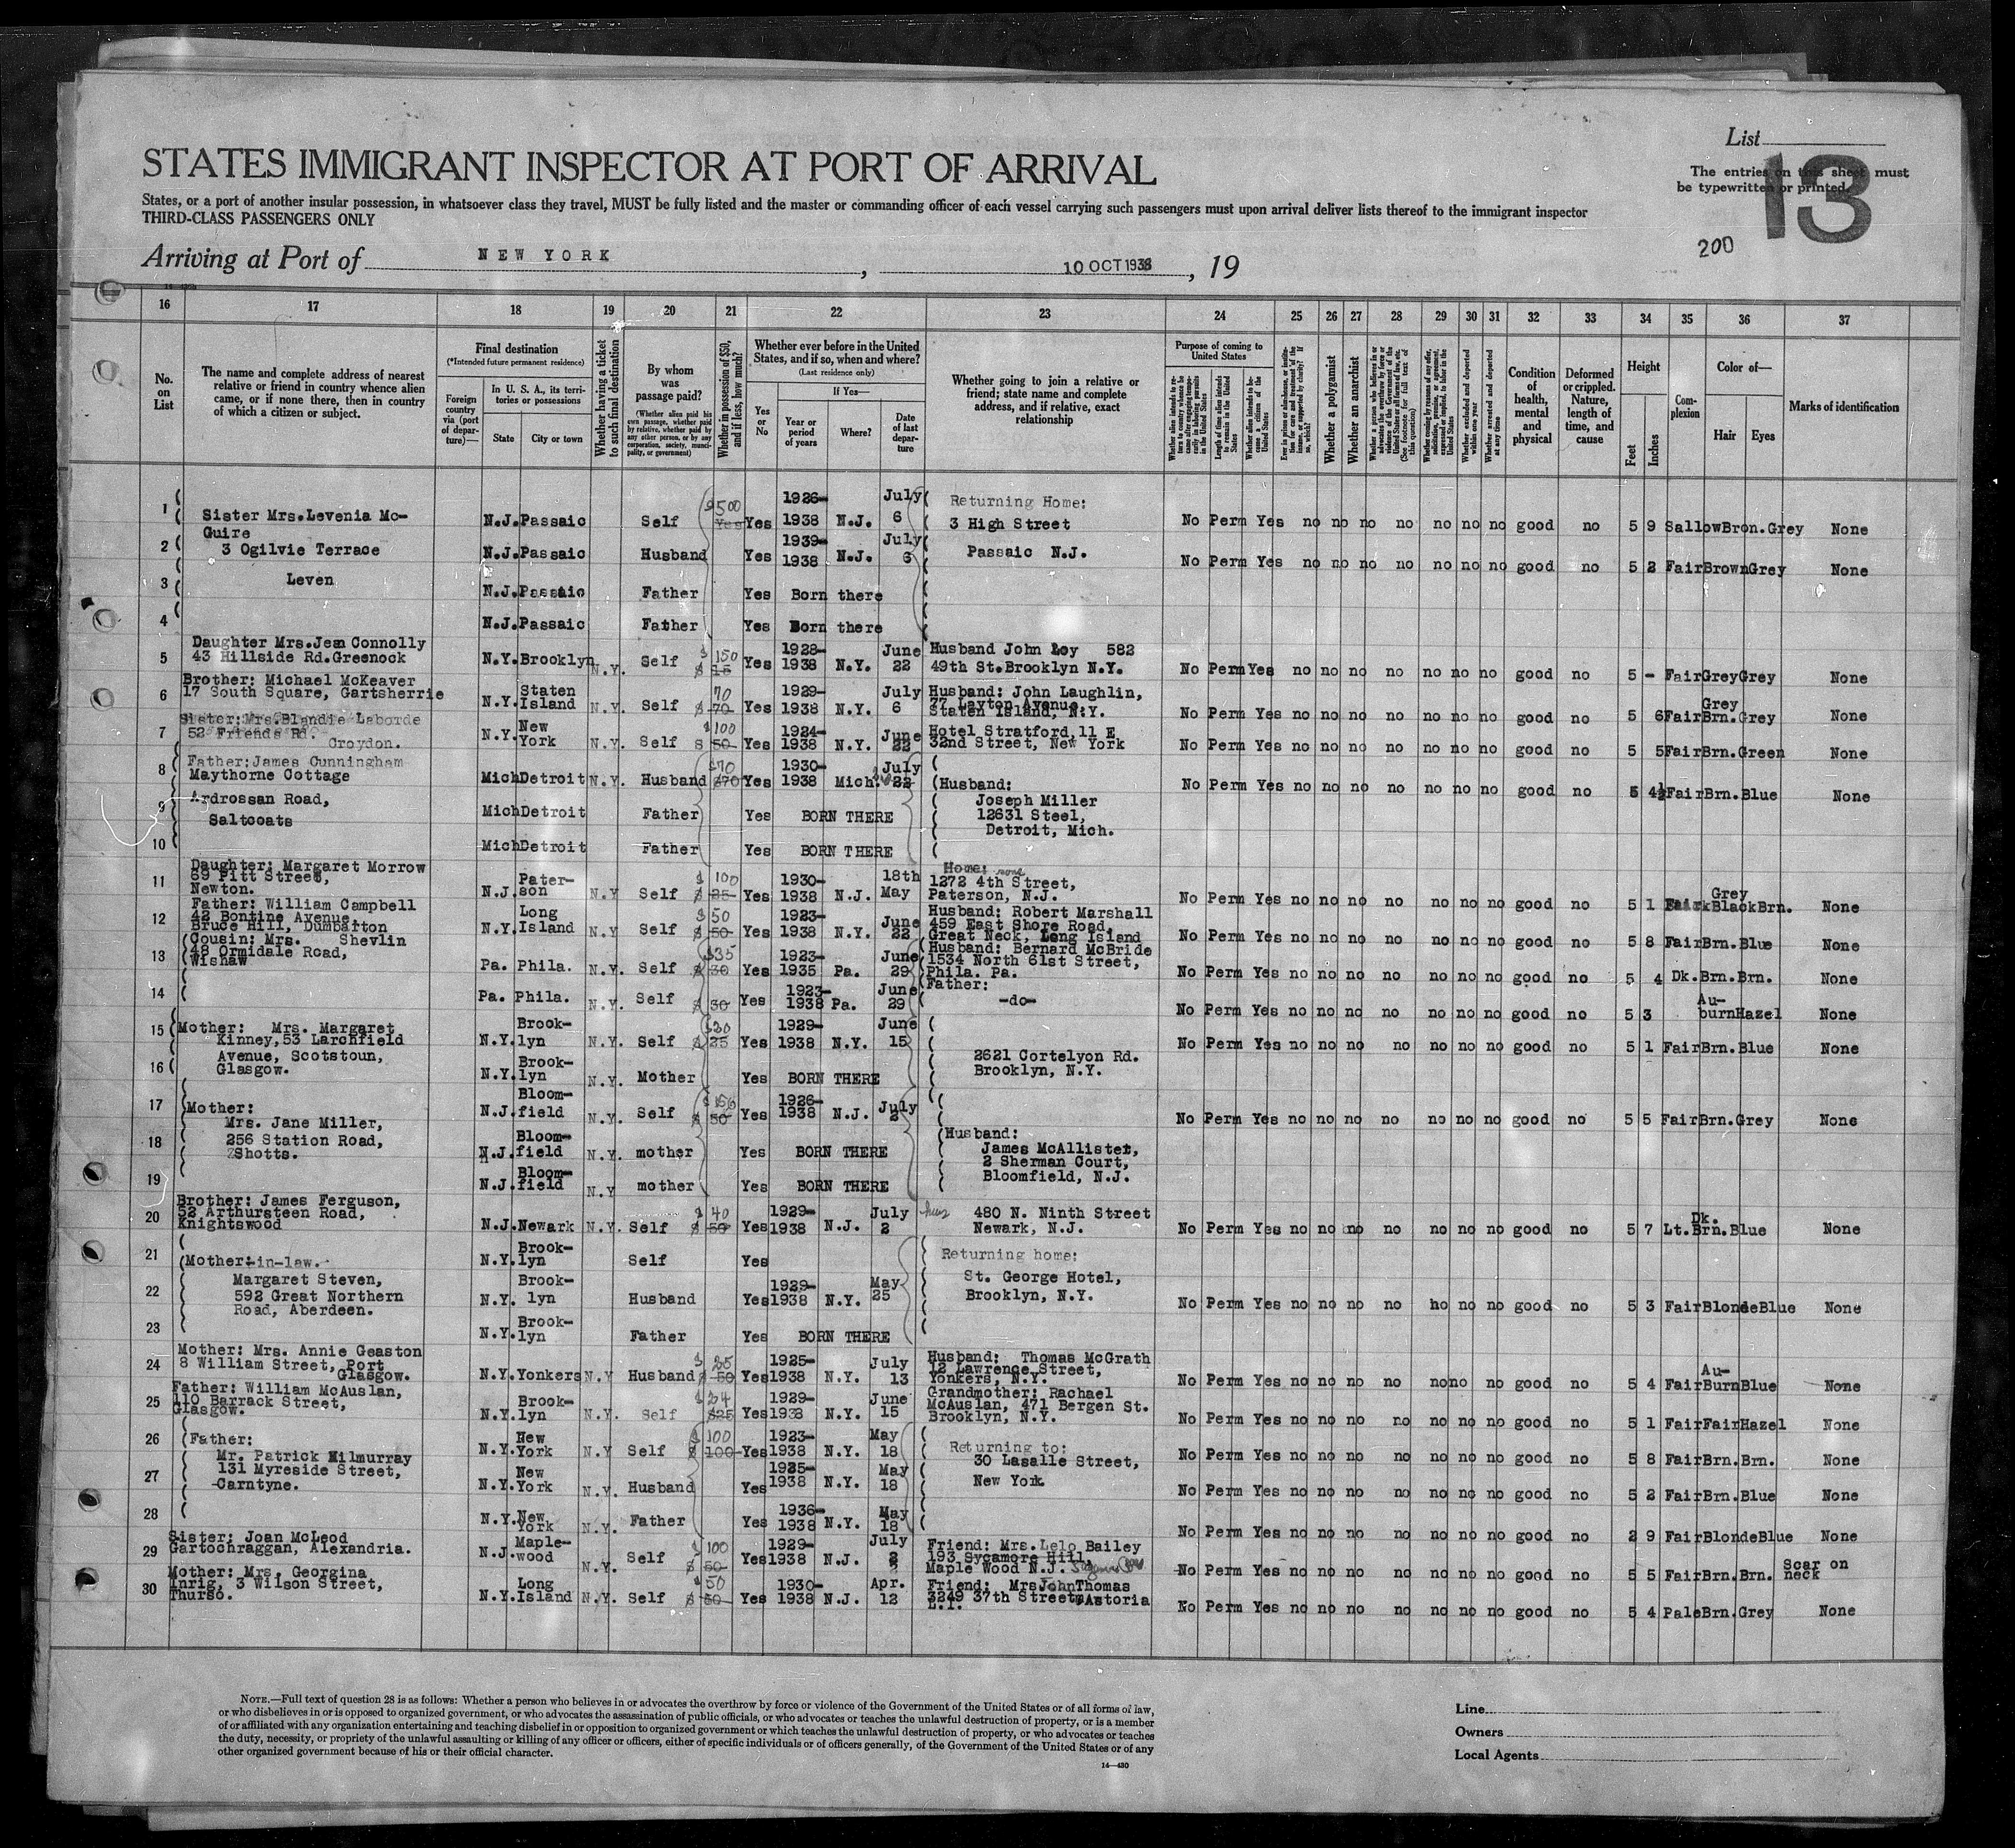 List
13
The entries on this sheet must
be typewritten or printed
200
STATES IMMIGRANT INSPECTOR AT PORT OF ARRIVAL
States, or a port of another insular possession, in whatsoever class they travel, MUST be fully listed and the master or commanding officer of each vessel carrying such passengers must upon arrival deliver lists thereof to the immigrant inspector
THIRD-CLASS PASSENGERS ONLY
Arriving at Port of NEW YORK, 10 OCT 1938, 19
16 17 18 19 20 21 22 23 24 25 26 27 28 29 30 31 32 33 34 35 36 37
No. on List
The name and complete address of nearest relative or friend in country whence alien came, or if none there, then in country of which a citizen or subject.
Final destination
(*Intended future permanent residence)
Foreign country via (port of departure)—
In U. S. A., its territories or possessions
State City or town
Whether having a ticket to such final destination
By whom was passage paid?
(Whether alien paid his own passage, whether paid by relative, whether paid by any other person, or by any corporation, society, municipality, or government)
Whether in possession of $50, and if less, how much?
Whether ever before in the United States, and if so, when and where?
(Last residence only)
Yes or No
If Yes—
Year or period of years
Where?
Date of last departure
Whether going to join a relative or friend; state name and complete address, and if relative, exact relationship
Purpose of coming to United States
Length of time alien intends to remain in the United States
Whether alien intends to become a citizen of the United States
Whether a polygamist
Whether an anarchist
Whether excluded and deported within one year
Whether arrested and deported at any time
Condition of health, mental and physical
Deformed or crippled. Nature, length of time, and cause
Height
Feet Inches
Complexion
Color of—
Hair Eyes
Marks of identification
1 Sister Mrs.Levenia Mc-Guire N.J. Passaic Self $500 Yes Yes 1926-1938 N.J. July 6 Returning Home: 3 High Street No Perm Yes no no no no no no no good no 5 9 Sallow Bron. Grey None
2 3 Ogilvie Terrace N.J. Passaic Husband Yes 1939-1938 N.J. July 6 Passaic N.J. No Perm Yes no no no no no no no good no 5 2 Fair Brown Grey None
3 Leven N.J. Passaic Father Yes Born there
4 N.J. Passaic Father Yes Born there
5 Daughter Mrs.Jean Connolly 43 Hillside Rd.Greenock N.Y. Brooklyn N.Y. Self $ 150 $ 15 Yes 1928-1938 N.Y. June 22 Husband John Loy 582 49th St.Brooklyn N.Y. No Perm Yes no no no no no no no good no 5 - Fair Grey Grey None
6 Brother: Michael McKeaver 17 South Square, Gartsherrie N.Y. Staten Island N.Y. Self 70 $ 70 Yes 1929-1938 N.Y. July 6 Husband: John Laughlin, 77 Layton Avenue, Staten Island, N.Y. No Perm Yes no no no no no no no good no 5 6 Fair Grey Brn. Grey None
7 Sister: Mrs.Blandie Laborde 52 Friends Rd. Croydon. N.Y. New York N.Y. Self $100 $ 50 Yes 1924-1938 N.Y. June 22 Hotel Stratford, 11 E 32nd Street, New York No Perm Yes no no no no no no no good no 5 5 Fair Brn. Green None
8 Father:James Cunningham Maythorne Cottage Mich Detroit N.Y. Husband $70 $70 Yes 1930-1938 Mich. July 22 (Husband: No Perm Yes no no no no no no no good no 5 4½ Fair Brn. Blue None
9 Ardrossan Road, Saltcoats Mich Detroit Father Yes BORN THERE Joseph Miller 12631 Steel, Detroit, Mich.
10 Mich Detroit Father Yes BORN THERE
11 Daughter: Margaret Morrow 89 Pitt Street, Newton. N.J. Pater-son N.Y Self $ 100 $ 25 Yes 1930-1938 N.J. 18th May Home: none 1272 4th Street, Paterson, N.J. No Perm Yes no no no no no no no good no 5 1 Grey Black Brn. None
12 Father: William Campbell 42 Bontine Avenue, Bruce Hill, Dumbarton N.Y. Long Island N.Y Self $ 50 $ 50 Yes 1923-1938 N.Y. June 22 Husband: Robert Marshall 459 East Shore Road, Great Neck, Long Island No Perm Yes no no no no no no no good no 5 8 Fair Brn. Blue None
13 (Cousin: Mrs. Shevlin 48 Ormidale Road, Wishaw Pa. Phila. N.Y. Self $35 $ 30 Yes 1923-1935 Pa. June 29 (Husband: Bernard McBride 1534 North 61st Street, Phila. Pa. No Perm Yes no no no no no no no good no 5 4 Dk. Brn. Brn. None
14 Pa. Phila. N.Y. Self $ 30 Yes 1923-1938 Pa. June 29 Father: -do- No Perm Yes no no no no no no no good no 5 3 Au-burn Hazel None
15 (Mother: Mrs. Margaret Kinney, 53 Larchfield N.Y. Brook-lyn N.Y. Self $30 $ 25 Yes 1929-1938 N.Y. June 15 No Perm Yes no no no no no no no good no 5 1 Fair Brn. Blue None
16 Avenue, Scotstoun, Glasgow. N.Y. Brook-lyn N.Y. Mother Yes BORN THERE 2621 Cortelyon Rd. Brooklyn, N.Y.
17 (Mother: Mrs. Jane Miller, N.J. Bloom-field N.Y. Self $ 50 Yes 1926-1938 N.J. July 2 No Perm Yes no no no no no no no good no 5 5 Fair Brn. Grey None
18 256 Station Road, Shotts. N.J. Bloom-field N.Y. mother Yes BORN THERE (Husband: James McAllister, 2 Sherman Court,
19 N.J. Bloom-field N.Y mother Yes BORN THERE Bloomfield, N.J.
20 Brother: James Ferguson, 52 Arthursteen Road, Knightswood N.J. Newark N.Y. Self $ 40 $ 50 Yes 1929-1938 N.J. July 2 hus 480 N. Ninth Street Newark, N.J. No Perm Yes no no no no no no no good no 5 7 Lt. Dk. Brn. Blue None
21 (Mother-in-law. N.Y. Brook-lyn Self Yes Returning home:
22 Margaret Steven, 592 Great Northern Road, Aberdeen. N.Y. Brook-lyn Husband Yes 1929-1938 N.Y. May 25 St. George Hotel, Brooklyn, N.Y. No Perm Yes no no no no ho no no good no 5 3 Fair Blonde Blue None
23 N.Y. Brook-lyn Father Yes BORN THERE
24 Mother: Mrs. Annie Geaston 8 William Street, Port Glasgow. N.Y. Yonkers N.Y Husband $ 50 Yes 1925-1938 N.Y. July 13 Husband: Thomas McGrath 12 Lawrence Street, Yonkers, N.Y. No Perm Yes no no no no no no no good no 5 4 Fair Au-Burn Blue None
25 Father: William McAuslan, 110 Barrack Street, Glasgow. N.Y. Brook-lyn N.Y. Self $ 24 $25 Yes 1929-1938 N.Y. June 15 Grandmother: Rachael McAuslan, 471 Bergen St. Brooklyn, N.Y. No Perm Yes no no no no no no no good no 5 1 Fair Fair Hazel None
26 (Father: Mr. Patrick Kilmurray N.Y. New York N.Y Self $ 100 $ 100 Yes 1923-1938 N.Y. May 18 Returning to: 30 Lasalle Street, No Perm Yes no no no no no no no good no 5 8 Fair Brn. Brn. None
27 131 Myreside Street, Carntyne. N.Y. New York N.Y. Husband Yes 1925-1938 N.Y. May 18 New York No Perm Yes no no no no no no no good no 5 2 Fair Brn. Blue None
28 N.Y. New York N.Y. Father Yes 1936-1938 N.Y. May 18 No Perm Yes no no no no no no no good no 2 9 Fair Blonde Blue None
29 Sister: Joan McLeod Gartochraggan, Alexandria. N.J. Maple-wood N.Y. Self $ 100 $ 50 Yes 1929-1938 N.J. July 2 Friend: Mrs. Lelo Bailey 193 Sycamore Hill, Maple Wood N.J. No Perm Yes no no no no no no no good no 5 5 Fair Brn. Brn. Scar on neck
30 Mother: Mrs. Georgina Inrig, 3 Wilson Street, Thurso. N.Y. Long Island N.Y. Self $ 50 $ 50 Yes 1930-1938 N.J. Apr. 12 Friend: Mrs John Thomas 3249 37th Street, Astoria L.I. No Perm Yes no no no no no no no good no 5 4 Pale Brn. Grey None
NOTE.—Full text of question 28 is as follows: Whether a person who believes in or advocates the overthrow by force or violence of the Government of the United States or of all forms of law,
or who disbelieves in or is opposed to organized government, or who advocates the assassination of public officials, or who advocates or teaches the unlawful destruction of property, or is a member
of or affiliated with any organization entertaining and teaching disbelief in or opposition to organized government or which teaches the unlawful destruction of property, or who advocates or teaches
the duty, necessity, or propriety of the unlawful assaulting or killing of any officer or officers, either of specific individuals or of officers generally, of the Government of the United States or of any
other organized government because of his or their official character.
14—480
Line
Owners
Local Agents